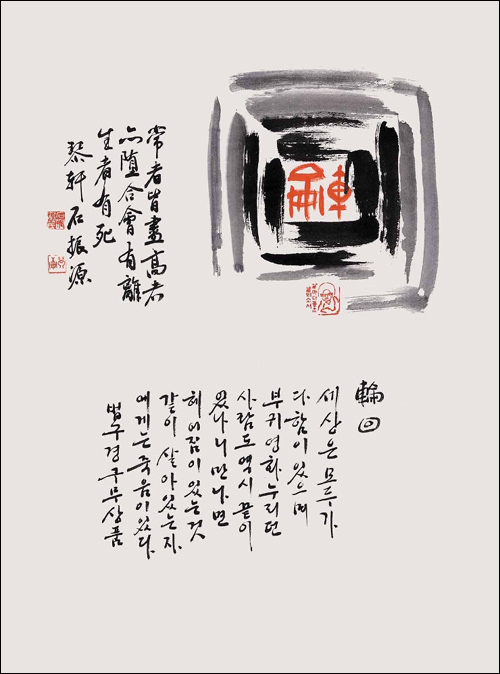 輪
常者皆盡高者
亦墮合會有離
生者有死
軒 石振源
輪回
세상은 모두가
다함이 있으며
부귀영화 누리던
사람도 역시 끝이
있나니 만나면
헤어짐이 있는 것
같이 살아있는 자
에게는 죽음이 있다.
법구경 구무상품